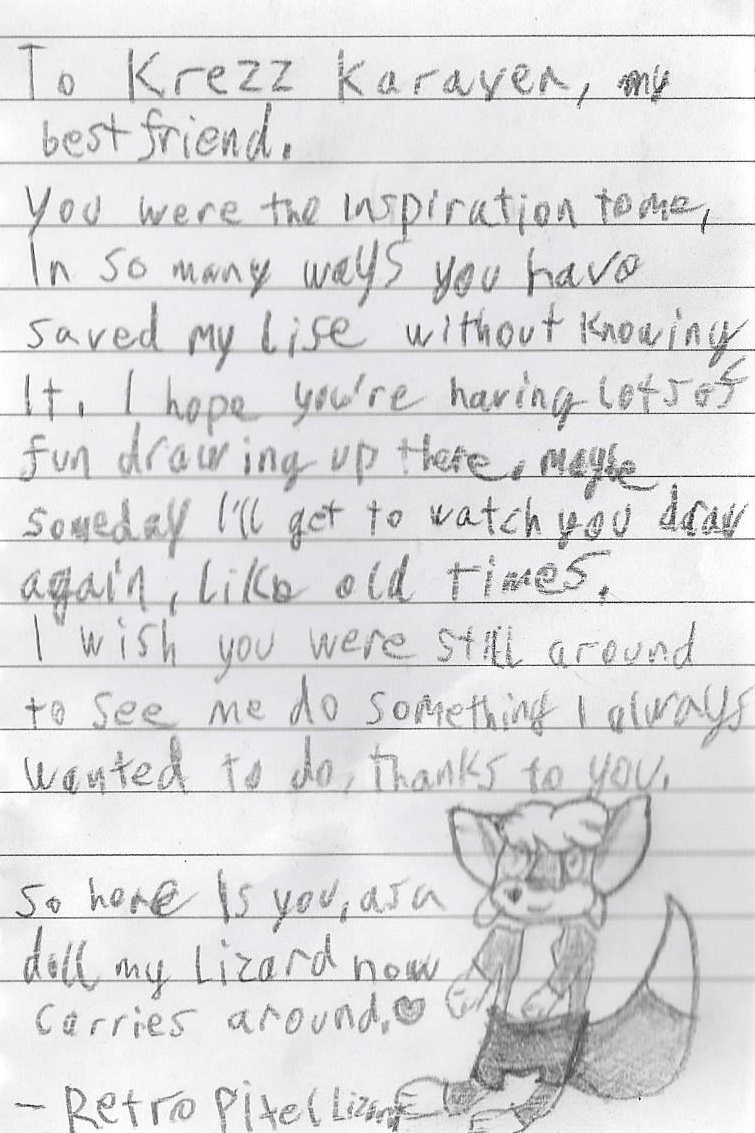 To Krezz Karaver, my
best friend.
You were the inspiration to me,
In so many ways you have
saved my life without knowing
it. I hope you're having lots of
fun drawing up there, maybe
someday I'll get to watch you draw
again, like old times.
I wish you were still around
to see me do something I always
wanted to do, thanks to you.
So here is you, as a
doll my Lizard now
carries around.♥
- Retro Pixel Lizard